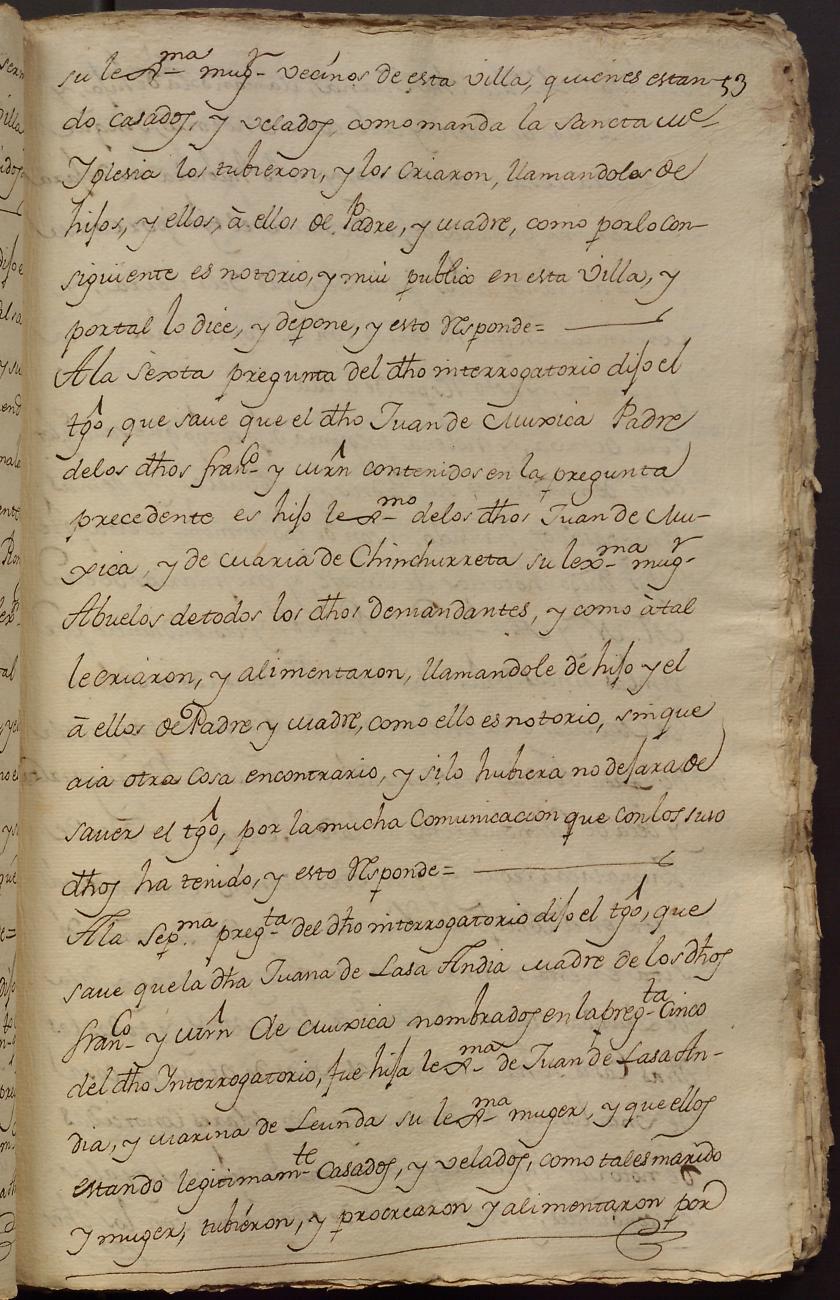 su lexma mugr vecinos de esta villa, quienes estan- 53
do casados, y velados, como manda la sancta Me
Yglesia los tubieron, y los criaron, llamandolos de
hijos, y ellos, à ellos de Padre, y madre, como por lo con-
siguiente es notorio, y mui publico en esta villa, y
por tal lo dice, y depone, y esto Responde=
A la sexta pregunta del dho interrogatorio dijo el
tgo, que save que el dho Juan de Muxica Padre
de los dhos Franco y Mrn contenidos en la pregunta
precedente es hijo lexmo de los dhos Juan de Mu-
xica, y de Maria de Chinchurreta su lexma mugr
Abuelos de todos los dhos demandantes, y como à tal
le criaron, y alimentaron, llamandole de hijo y el
à ellos de Padre y madre, como ello es notorio, sin que
aia otra cosa encontrario, y si lo hubiera no dejara de
saver el tgo, por la mucha Comunicacion que con los suso
dhos ha tenido, y esto Responde=
A la sepma pregta del dho interrogatorio dijo el tgo, que
save que la dha Juana de Lasa Andia madre de los dhos
Franco y Mrn de Muxica nombrados en la pregta Cinco
del dho Ynterrogatorio, fue hija lexma de Juan de Lasa An-
dia, y Marina de Leunda su lexma muger, y que ellos
estando legitimamte Casados, y velados, como tales marido
y muger, tubieron, y procrearon y alimentaron por